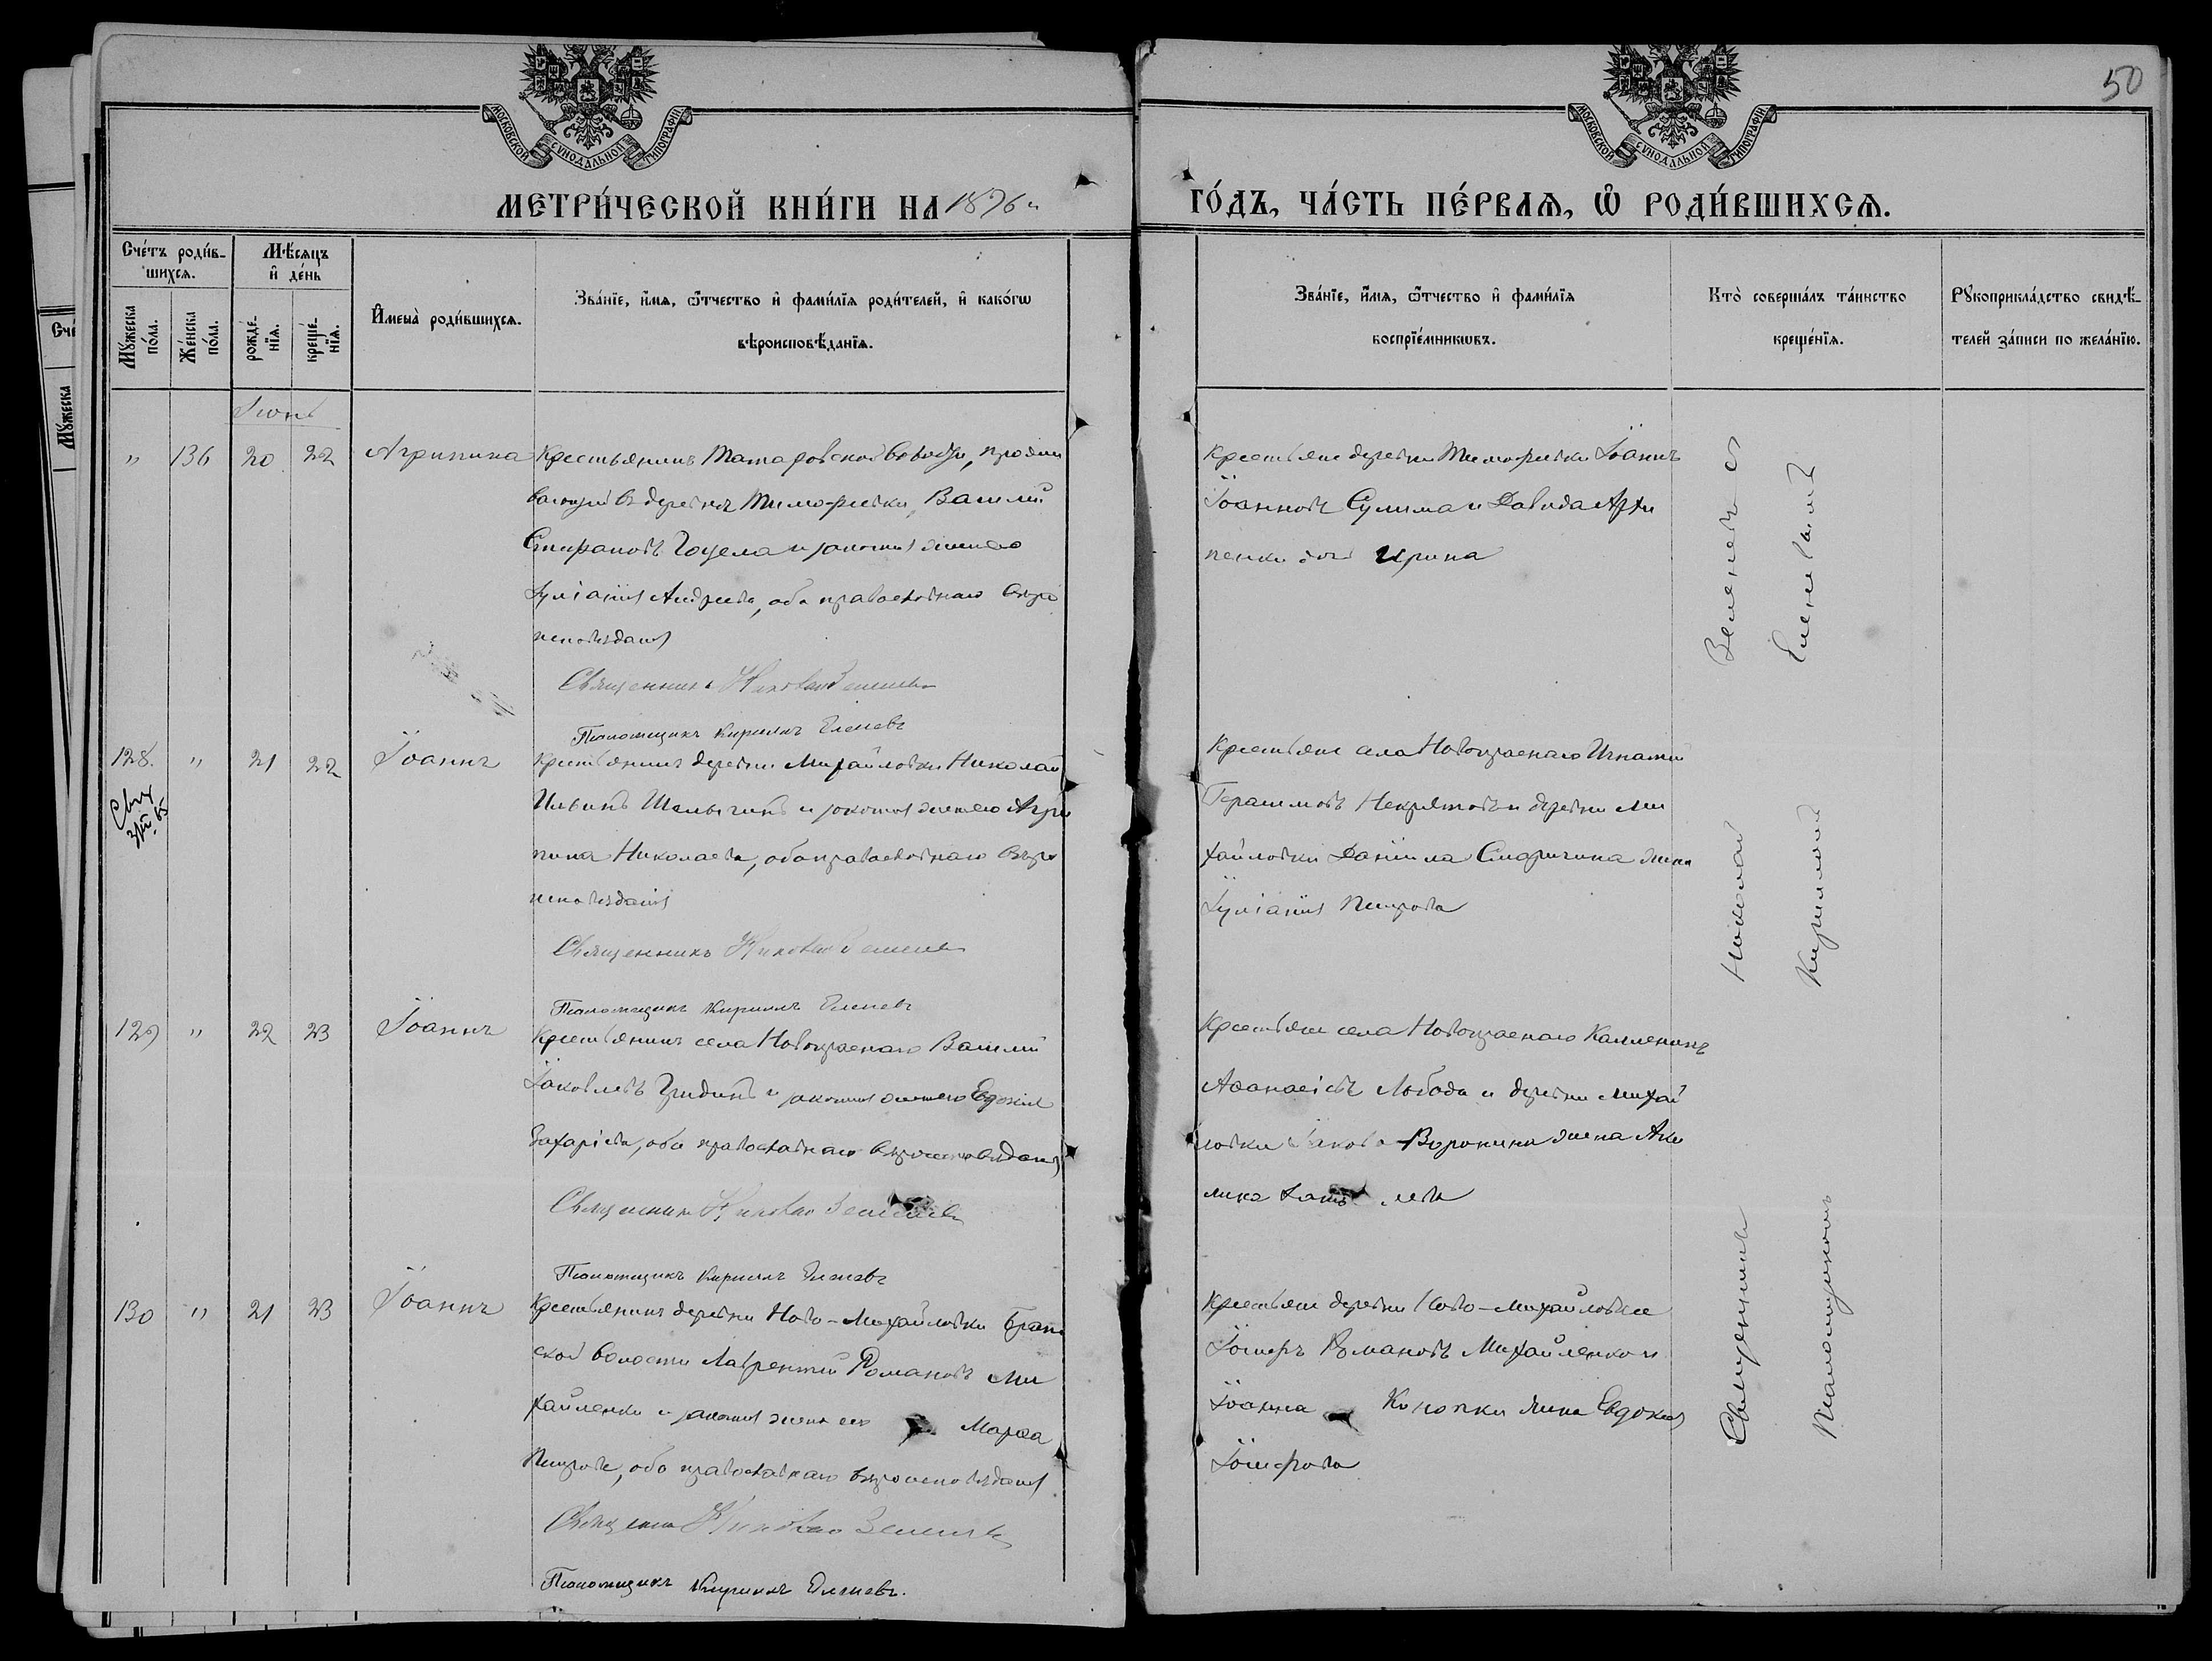 50
МОСКОВСКОЙ СѴНОДАЛЬНОЙ ТИПОГРАФІИ
МОСКОВСКОЙ СѴНОДАЛЬНОЙ ТИПОГРАФІИ
МЕТРИ́ЧЕСКОЙ КНИ́ГИ НА 1896 ГО́ДЪ, ЧА́СТЬ ПЕ́РВАѦ, Ѡ҆ РОДИ́ВШИХСѦ.
Сче́тъ роди́вшихсѧ.
Мѣ́сѧцъ и҆ де́нь
Мꙋ́жеска по́ла.
Же́нска по́ла.
рожде́нїѧ.
креще́нїѧ.
И҆мена̀ роди́вшихсѧ.
Зва́нїе, и҆́мѧ, ѻ҆́тчество и҆ фами́лїѧ роди́телей, и҆ како́гѡ
вѣроисповѣ́данїѧ.
Зва́нїе, и҆́мѧ, ѻ҆́тчество и҆ фами́лїѧ
воспрїе́мникѡвъ.
Кто̀ соверша́лъ та́инство
креще́нїѧ.
Рꙋкоприкла́дство свидѣ́телей за́писи по жела́нїю.
Іюнь
" 136 20 22 Агрипина
Крестьянинъ Татаровской волости, прожи
вающій въ деревнѣ Тимофѣевки, Василій
Стефановъ и законная жена его
Іуліанія Андреева, оба православнаго вѣро
исповѣданія
Священникъ Николай
Псаломщикъ Кириллъ Еленевъ
Крестьяне деревни Тимофѣевки Іоаннъ
Іоанновъ Сулима и Давида Архи
пенки дочь Ирина
128. " 21 22 Іоаннъ
Крестьянинъ деревни Михайловки Николай
Ильинъ Шелыгинъ и законная жена его Агри
пина Николаева, оба православнаго вѣро
исповѣданія
Священникъ Николай
Псаломщикъ Кириллъ Еленевъ
Крестьяне села Новокраснаго Игнатій
Герасимовъ Некрятовъ и деревни Ми
хайловки Даніила Смаричина жена
Іуліанія Петрова
129 " 22 23 Іоаннъ
Крестьянинъ села Новокраснаго Василій
Іаковлевъ и законная жена его Евдокія
Захаріева, оба православнаго вѣроисповѣданія
Священникъ Николай
Псаломщикъ Кириллъ Еленевъ
Крестьяне села Новокраснаго Каллиникъ
Аѳанасіевъ Лобода и деревни Михай
ловки Іакова Воронина жена Аки
лина
130 " 21 23 Іоаннъ
Крестьянинъ деревни Ново-Михайловки
ской волости Лаврентій Романовъ Ми
хайленко и законная жена его Марѳа
Петрова, оба православнаго вѣроисповѣданія
Николай
Псаломщикъ Кириллъ Еленевъ.
Крестьяне деревни Ново-Михайловки
Іосифъ Романовъ Михайленко и
Іоанна Конопки жена Евдокія
Іосифова
Священникъ Николай
Псаломщикомъ Кирилломъ Еленевымъ